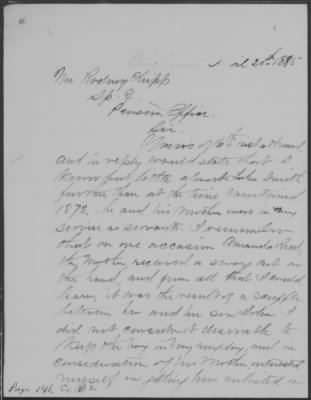 April 20th 1885
Mr Rodney Gupp
Sp. E.
Pension Office
Sir
Yours of 16th inst at hand
and in reply would state that I
know but little of John Smith
further than at the time mentioned
1872, he and his Mother were in my
service as servants. I remember
that on one occasion Amanda
the Mother received a severe cut on
the hand, and from all that I could
learn, it was the result of a scuffle
between her and her son John. I
did not consider it desirable to
keep the boy in my employ, and in
consideration of his Mother, interested
myself in getting him enlisted in
Page 141, C. & 2